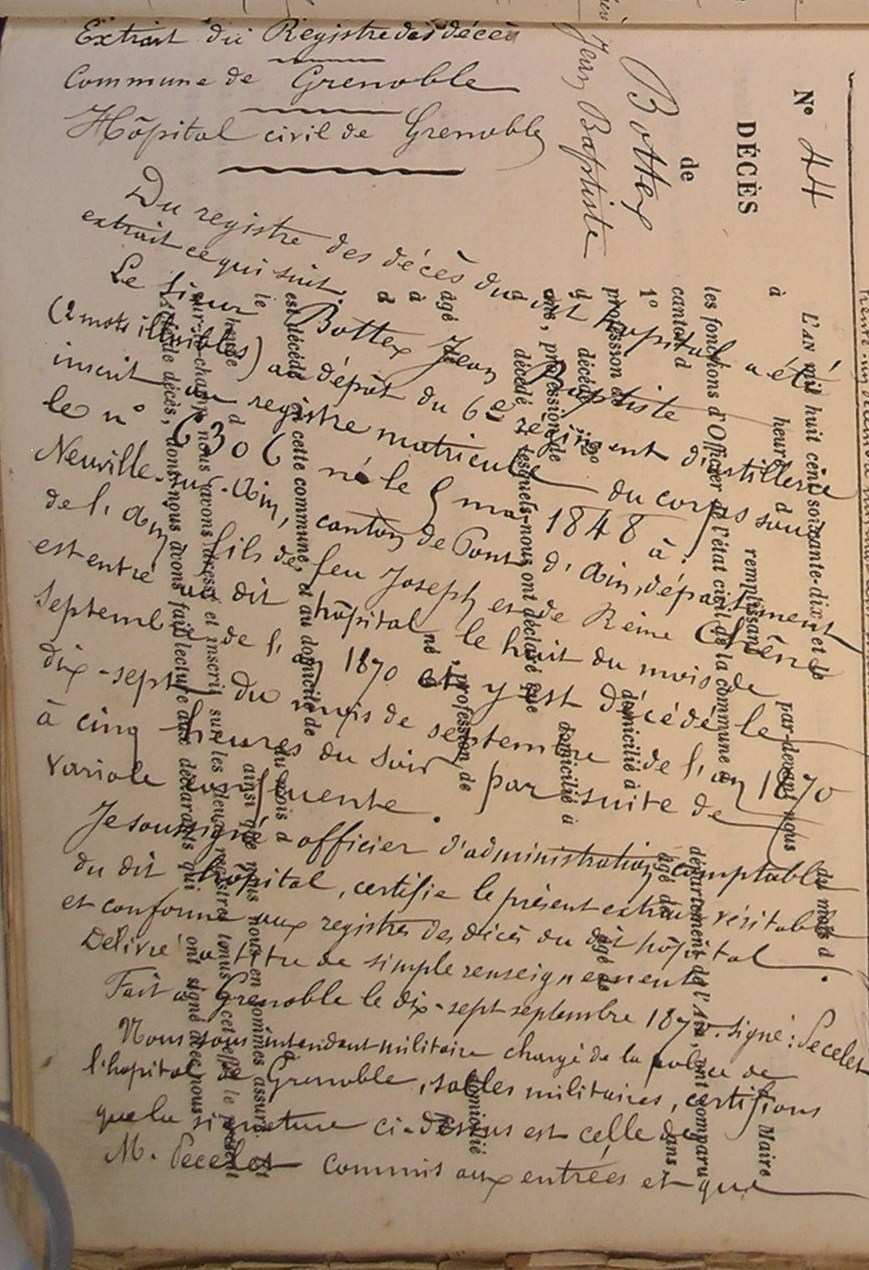 Extrait du Registre des décès
Commune de Grenoble
Hôpital civil de Grenoble
N° 44
DÉCÈS
de
Bottex
Jean Baptiste
Du registre des décès du dit hôpital a été
extrait ce qui suit
Le sieur Bottex Jean Baptiste
(2 mots illisibles) au dépôt du 6e régiment d'artillerie
inscrit au registre matricule du corps sous
le n° 6306 né le 5 mai 1848 à
Neuville-sur-Ain, canton de Pont d'Ain, département
de l'Ain fils de feu Joseph et de Reine
est entré au dit hôpital le huit du mois de
septembre de l'an 1870 et y est décédé le
dix-sept du mois de septembre de l'an 1870
à cinq heures du soir par suite de
variole confluente.
Je soussigné officier d'administration comptable
du dit hôpital, certifie le présent extrait véritable
et conforme aux registres des décès du dit hôpital.
Délivré à titre de simple renseignement
Fait à Grenoble le dix-sept septembre 1870. signé: Pecelet
Nous sous intendant militaire chargé de la police de
l'hôpital de Grenoble, salles militaires, certifions
que la signature ci-dessus est celle de
M. Pecelet commis aux entrées et que
L'AN mil huit cent soixante-dix et le du mois d
à heure d par-devant nous
remplissant
les fonctions d'Officier de l'état civil de la commune d
canton d département de l'Ain, ont comparu
1° âgé de
profession de domicilié à
d décédé 2°
âgé de
ans, profession de domicilié à
décédé lesquels nous ont déclaré que
âgé né, profession de
à domicilié
d
est décédé en cette commune, et au domicile de
le du mois d à
heure d ainsi que nous nous en sommes assuré. Et
sur-le-champ nous avons dressé et inscrit sur les deux registres tenus à cet effet le présent
acte de décès, dont nous avons fait lecture aux déclarants qui ont signé avec nous
Maire